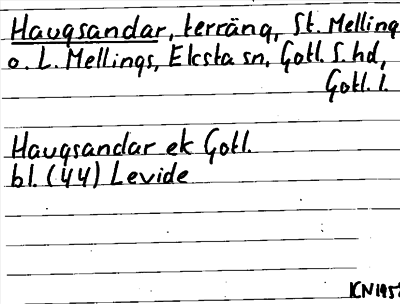 Haugsandar, terräng, St. Melling
o. L. Mellings, Eksta sn, Gotl. S. hd,
Gotl. l.
Haugsandar ek Gotl.
bl. (44) Levide